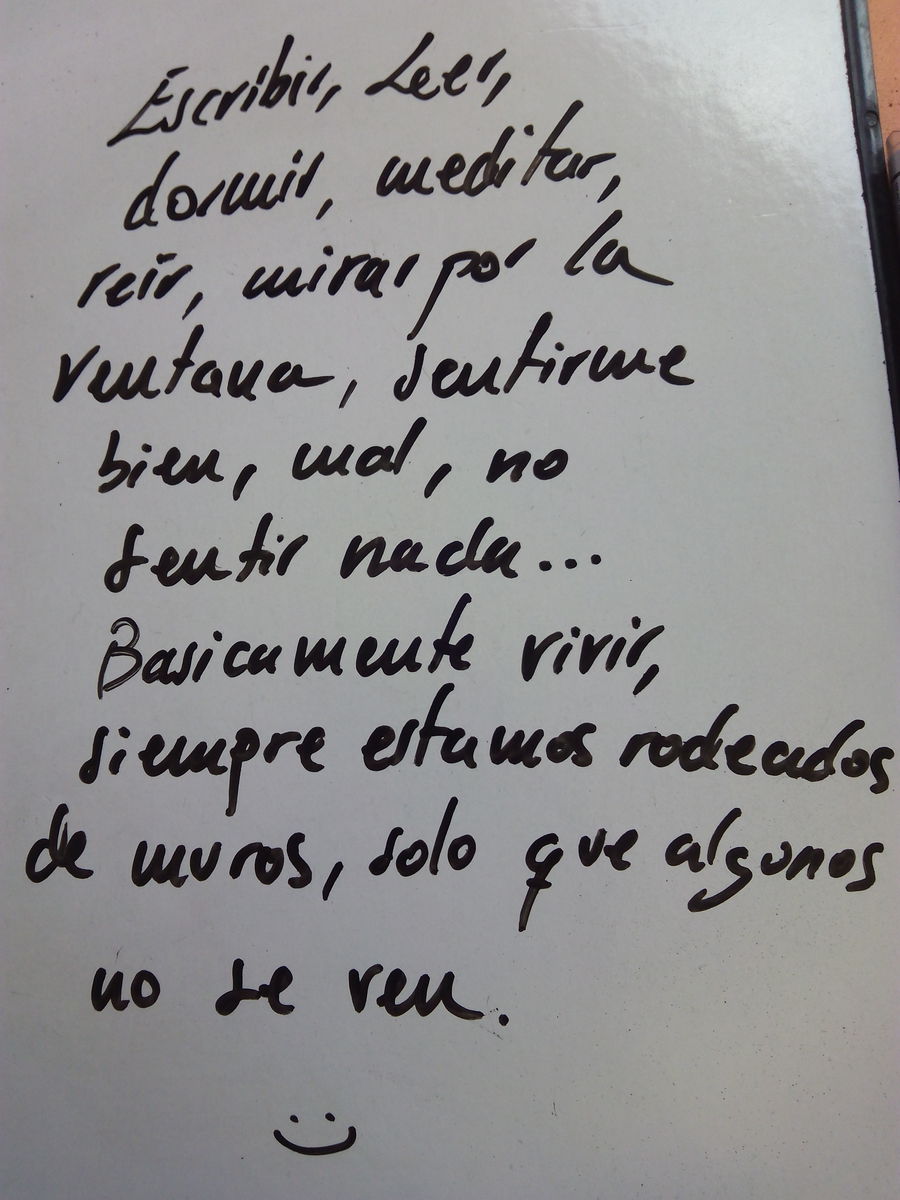 Escribir, Leer,
dormir, meditar,
reír, mirar por la
ventana, sentirme
bien, mal, no
sentir nada...
Basicamente vivir,
siempre estamos rodeados
de muros, solo que algunos
no se ven.